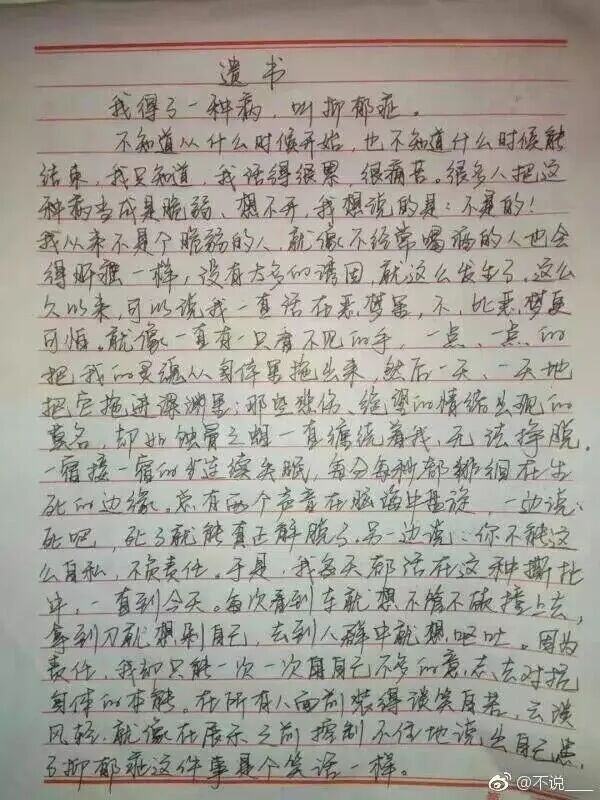 遗书
我得了一种病，叫抑郁症。
不知道从什么时候开始，也不知道什么时候能
结束，我只知道，我活得很累 很痛苦。很多人把这
种病当成是脆弱、想不开，我想说的是：不是的！
我从来不是个脆弱的人，就像不经常喝酒的人也会
得肝癌一样，没有太多的诱因，就这么发生了，这么
久以来，可以说我一直活在恶梦里，不，比恶梦更
可怕。就像一直有一只看不见的手，一点、一点的
把我的灵魂从身体里拖出来，然后一天、一天地
把它拖进深渊里；那些悲伤、绝望的情绪出现的
莫名，却如蚀骨之蛆一直缠绕着我，无法挣脱。
一宿接一宿的连续失眠，每分每秒都徘徊在生
死的边缘。总有两个声音在脑海中盘旋，一边说：
死吧，死了就能真正解脱了。另一边说：你不能这
么自私，不负责任。于是，我每天都活在这种撕扯
中，一直到今天。每次看到车就想不管不顾撞上去，
拿到刀就想剁自己，去到人群中就想呕吐。因为
责任，我却只能一次一次用自己不多的意志，去对抗
身体的本能。在所有人面前装得谈笑自若，云淡
风轻，就像在展示之前控制不住地说出自己患
了抑郁症这件事是个笑话一样。
@不说___